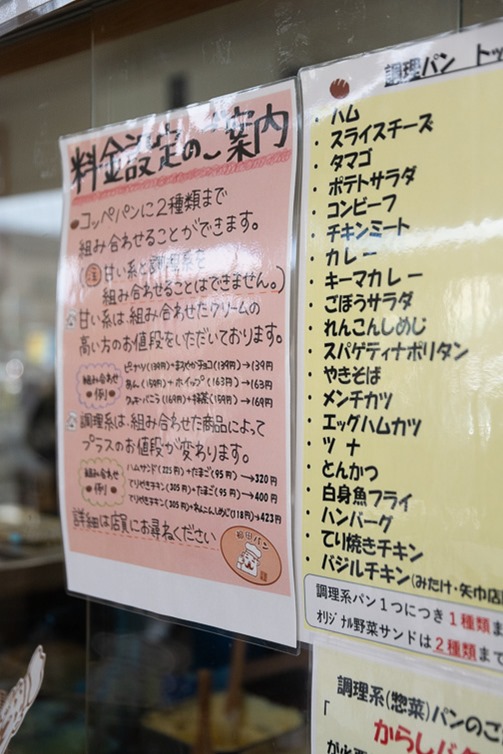 料金設定のご案内
コッペパンに2種類まで
組み合わせることができます。
(注 甘い系と調理系を
組み合わせることはできません。)
甘い系は、組み合わせたクリームの
高い方のお値段をいただいております。
組み合わせ
例
ピーナツ(139円)+まろやかチョコ(139円)→139円
あん(159円)+ホイップ(163円)→163円
クッキーバニラ(169円)+抹茶(159円)→169円
調理系は、組み合わせた商品によって
プラスのお値段が変わります。
組み合わせ
例
ハムサンド(225円)+たまご(95円)→320円
てりやきチキン(305円)+たまご(95円)→400円
てりやきチキン(305円)+れんこんしめじ(118円)→423円
詳細は店員にお尋ねください
調理パン トッ
・ハム
・スライスチーズ
・タマゴ
・ポテトサラダ
・コンビーフ
・チキンミート
・カレー
・キーマカレー
・ごぼうサラダ
・れんこんしめじ
・スパゲティナポリタン
・やきそば
・メンチカツ
・エッグハムカツ
・ツナ
・とんかつ
・白身魚フライ
・ハンバーグ
・てり焼きチキン
・バジルチキン(みたけ・矢巾店
調理系パン1つにつき1種類ま
オリジナル野菜サンドは2種類まで
調理系(惣菜)パンのご
「からしバ